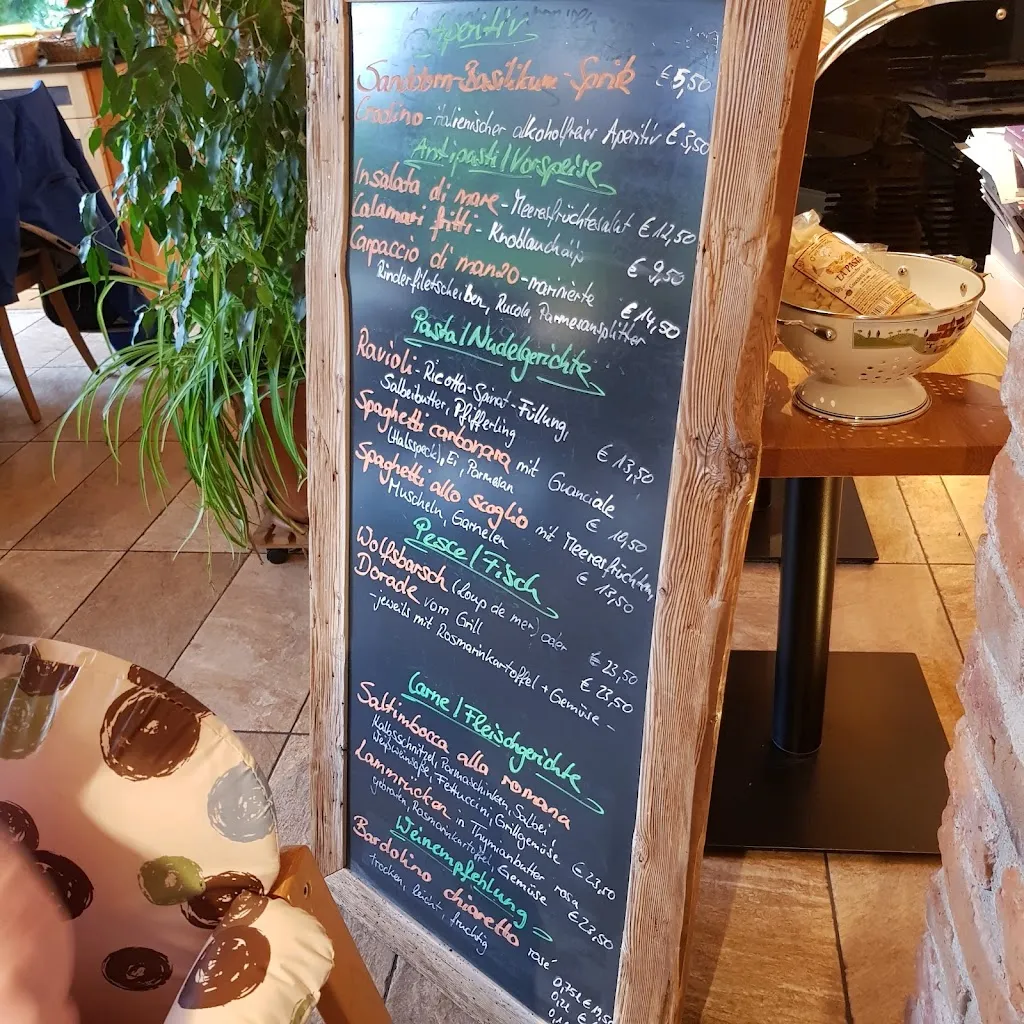 Aperitiv
Basilikum-Sprizz € 5,50
Crodino - italienischer alkoholfreier Aperitiv € 3,50
Antipasti/Vorspeise
Insalata di mare - Meeresfrüchtesalat € 12,50
Calamari fritti - Knoblauchdip € 9,50
Carpaccio di manzo - marinierte
Rinderfiletscheiben, Rucola, Parmesansplitter € 14,50
Pasta/Nudelgerichte
Ravioli - Ricotta-Spinat-Füllung,
Salbeibutter, Pfifferling € 13,50
Spaghetti carbonara mit Guanciale
(Halsspeck), Ei, Parmesan € 10,50
Spaghetti allo scoglio mit Meeresfrüchten,
Muscheln, Garnelen € 13,50
Pesce/Fisch
Wolfsbarsch (Loup de mer) oder € 23,50
Dorade vom Grill € 23,50
-jeweils mit Rosmarinkartoffel + Gemüse -
Carne/Fleischgerichte
Saltimbocca alla romana
Kalbsschnitzel, Parmaschinken, Salbei,
Weißweinsoße, Fettuccini, Grillgemüse € 23,50
Lammrücken in Thymianbutter rosa
gebraten, Rosmarinkartoffel, Gemüse € 23,50
Weinempfehlung
Bardolino chiaretto rosé
trocken, leicht, fruchtig
0,75l €
0,2l €